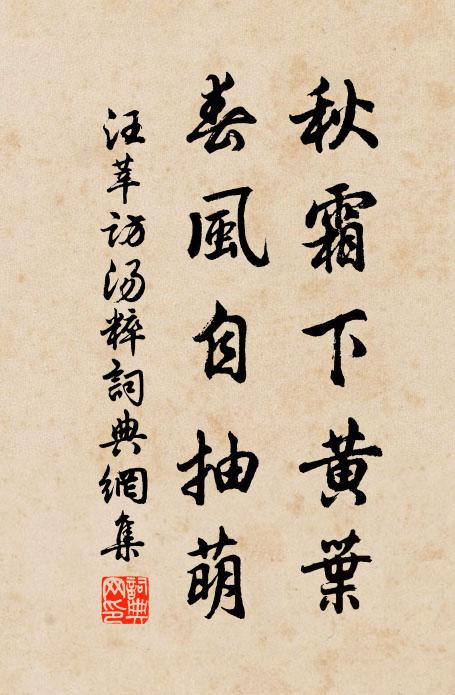 秋霜下黄葉
春風自抽萌
汪莘访汤粹詞典網集
詞典网印